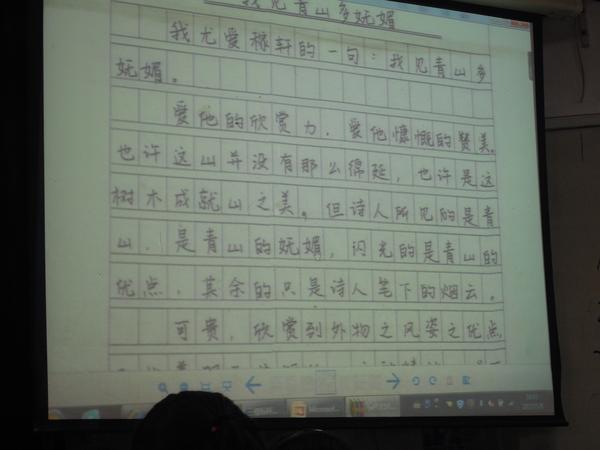 我见青山多妩媚
我尤爱稼轩的一句：我见青山多
妩媚。
爱他的欣赏力，爱他慷慨的赞美。
也许这山并没有那么绵延，也许是这
树木成就山之美。但诗人所见的是青
山，是青山的妩媚，闪光的是青山的
优点，其余的只是诗人笔下的烟云。
可贵，欣赏到外物之风姿之优点
Microsoft...